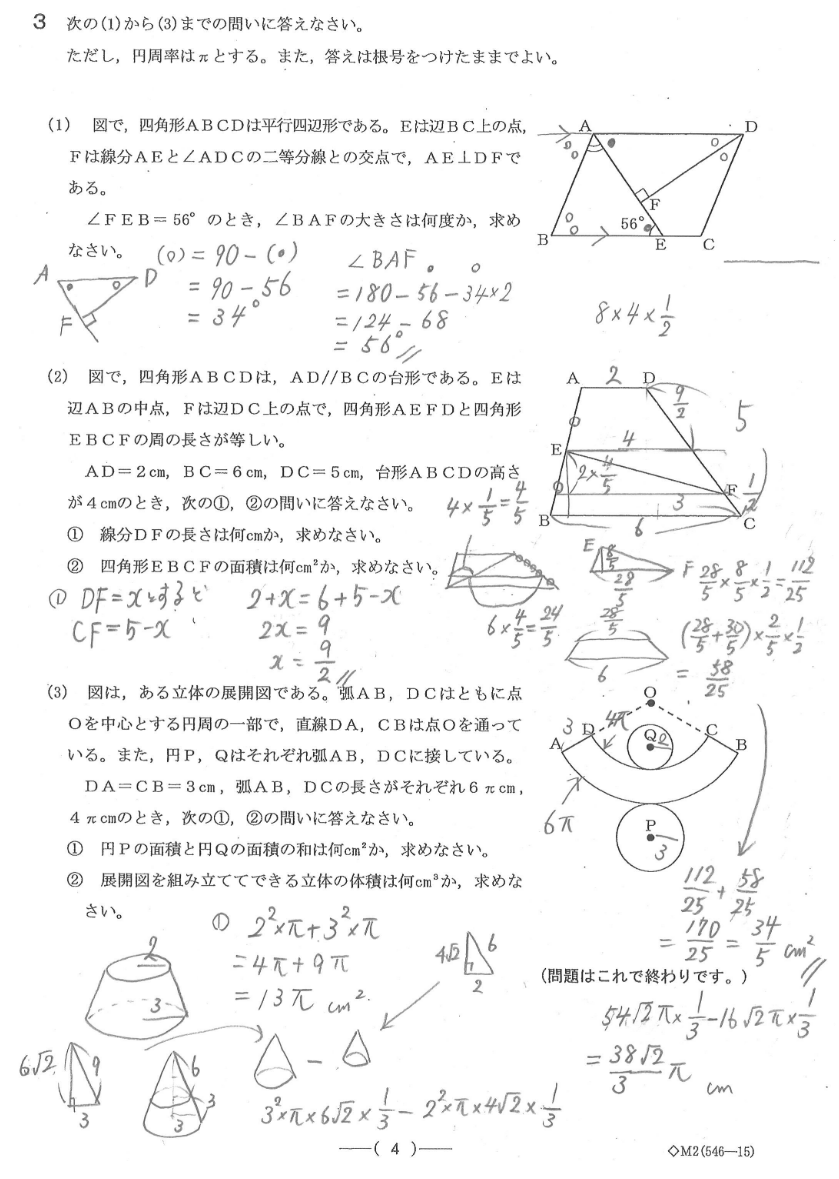 3 次の(1)から(3)までの問いに答えなさい。
ただし，円周率はπとする。また，答えは根号をつけたままでよい。
(1) 図で，四角形ＡＢＣＤは平行四辺形である。Ｅは辺ＢＣ上の点，
Ｆは線分ＡＥと∠ＡＤＣの二等分線との交点で，ＡＥ⊥ＤＦで
ある。
∠ＦＥＢ＝56°のとき，∠ＢＡＦの大きさは何度か，求め
なさい。
A
D
F
56°
B
E
C
(o) = 90 - (•)
= 90 - 56
= 34°
A
D
F
∠BAF
= 180 - 56 - 34×2
= 124 - 68
= 56°
8 × 4 × 1/2
(2) 図で，四角形ＡＢＣＤは，ＡＤ//ＢＣの台形である。Ｅは
辺ＡＢの中点，Ｆは辺ＤＣ上の点で，四角形ＡＥＦＤと四角形
ＥＢＣＦの周の長さが等しい。
ＡＤ＝2cm，ＢＣ＝6cm，ＤＣ＝5cm，台形ＡＢＣＤの高さ
が4cmのとき，次の①，②の問いに答えなさい。
① 線分ＤＦの長さは何cmか，求めなさい。
② 四角形ＥＢＣＦの面積は何cm²か，求めなさい。
A 2 D
9/2
5
4
E
2×4/5
F
3
1/2
B
6
C
4 × 1/5 = 4/5
① DF = xとすると
CF = 5-x
2+x = 6+5-x
2x = 9
x = 9/2
6 × 4/5 = 24/5
E
8/5
28/5
F
28/5 × 8/5 × 1/2 = 112/25
28/5
6
(28/5 + 30/5) × 2/5 × 1/2
= 58/25
(3) 図は，ある立体の展開図である。弧ＡＢ，ＤＣはともに点
Ｏを中心とする円周の一部で，直線ＤＡ，ＣＢは点Ｏを通って
いる。また，円Ｐ，Ｑはそれぞれ弧ＡＢ，ＤＣに接している。
ＤＡ＝ＣＢ＝3cm，弧ＡＢ，ＤＣの長さがそれぞれ6πcm，
4πcmのとき，次の①，②の問いに答えなさい。
① 円Ｐの面積と円Ｑの面積の和は何cm²か，求めなさい。
② 展開図を組み立ててできる立体の体積は何cm³か，求めな
さい。
O
3
D
4π
Q
2
C
A
B
6π
P
3
112/25 + 58/25
= 170/25 = 34/5 cm²
① 2²×π+3²×π
= 4π + 9π
= 13π cm²
2
3
4√2
6
2
(問題はこれで終わりです。)
54√2π × 1/3 - 16√2π × 1/3
= 38√2/3 π cm
6√2
9
3
6
3
3
-
3²×π×6√2×1/3 - 2²×π×4√2×1/3
—( 4 )—
◇M2(546—15)